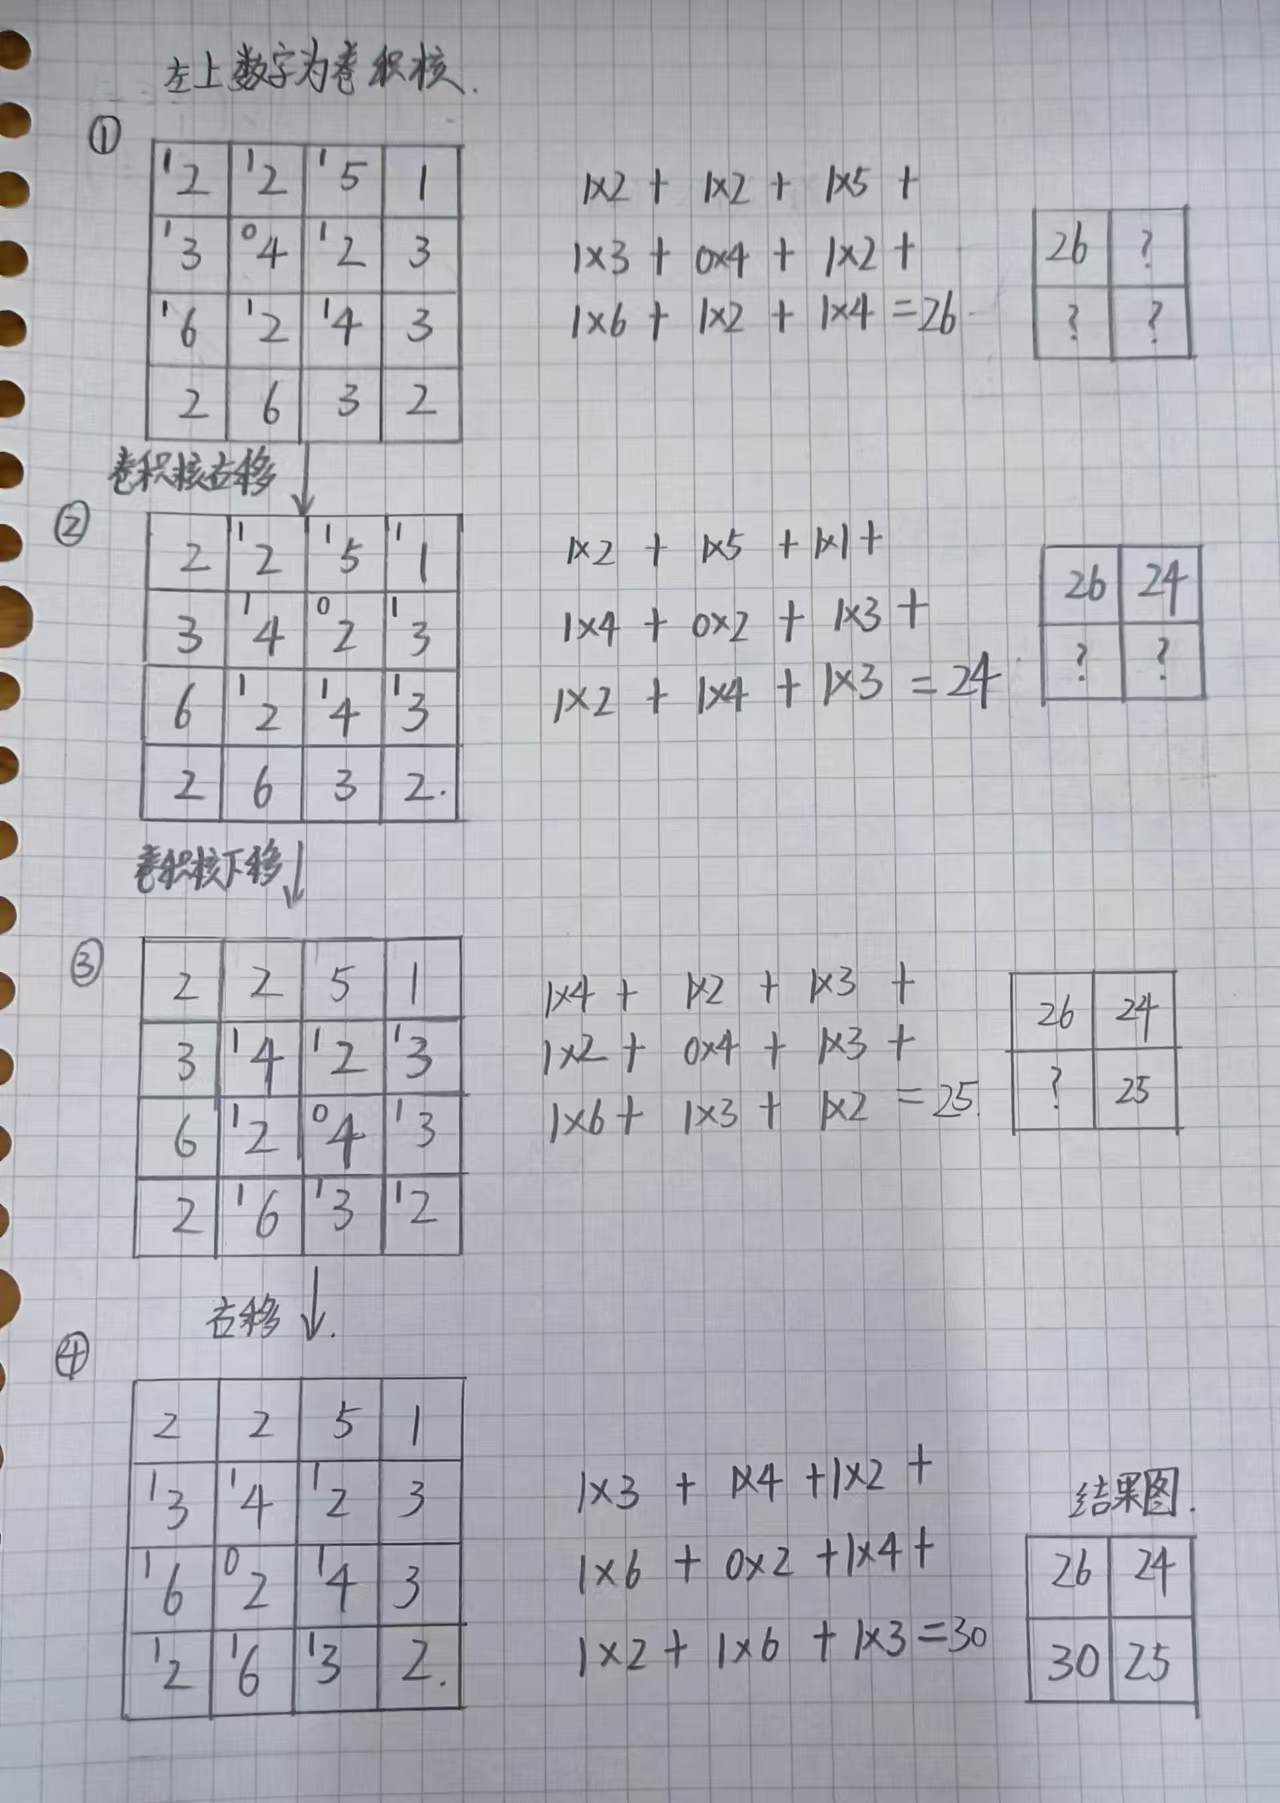 左上数字为卷积核.
①
¹2 ¹2 ¹5 1
¹3 ⁰4 ¹2 3
¹6 ¹2 ¹4 3
2 6 3 2
1×2 + 1×2 + 1×5 +
1×3 + 0×4 + 1×2 +
1×6 + 1×2 + 1×4 = 26
26 ?
? ?
卷积核右移
②
2 ¹2 ¹5 ¹1
3 ¹4 ⁰2 ¹3
6 ¹2 ¹4 ¹3
2 6 3 2.
1×2 + 1×5 + 1×1 +
1×4 + 0×2 + 1×3 +
1×2 + 1×4 + 1×3 = 24
26 24
? ?
卷积核下移
③
2 2 5 1
3 ¹4 ¹2 ¹3
6 ¹2 ⁰4 ¹3
2 ¹6 ¹3 ¹2
1×4 + 1×2 + 1×3 +
1×2 + 0×4 + 1×3 +
1×6 + 1×3 + 1×2 = 25
26 24
? 25
右移
④
2 2 5 1
¹3 ¹4 ¹2 3
¹6 ⁰2 ¹4 3
¹2 ¹6 ¹3 2.
1×3 + 1×4 + 1×2 +
1×6 + 0×2 + 1×4 +
1×2 + 1×6 + 1×3 = 30
结果图.
26 24
30 25